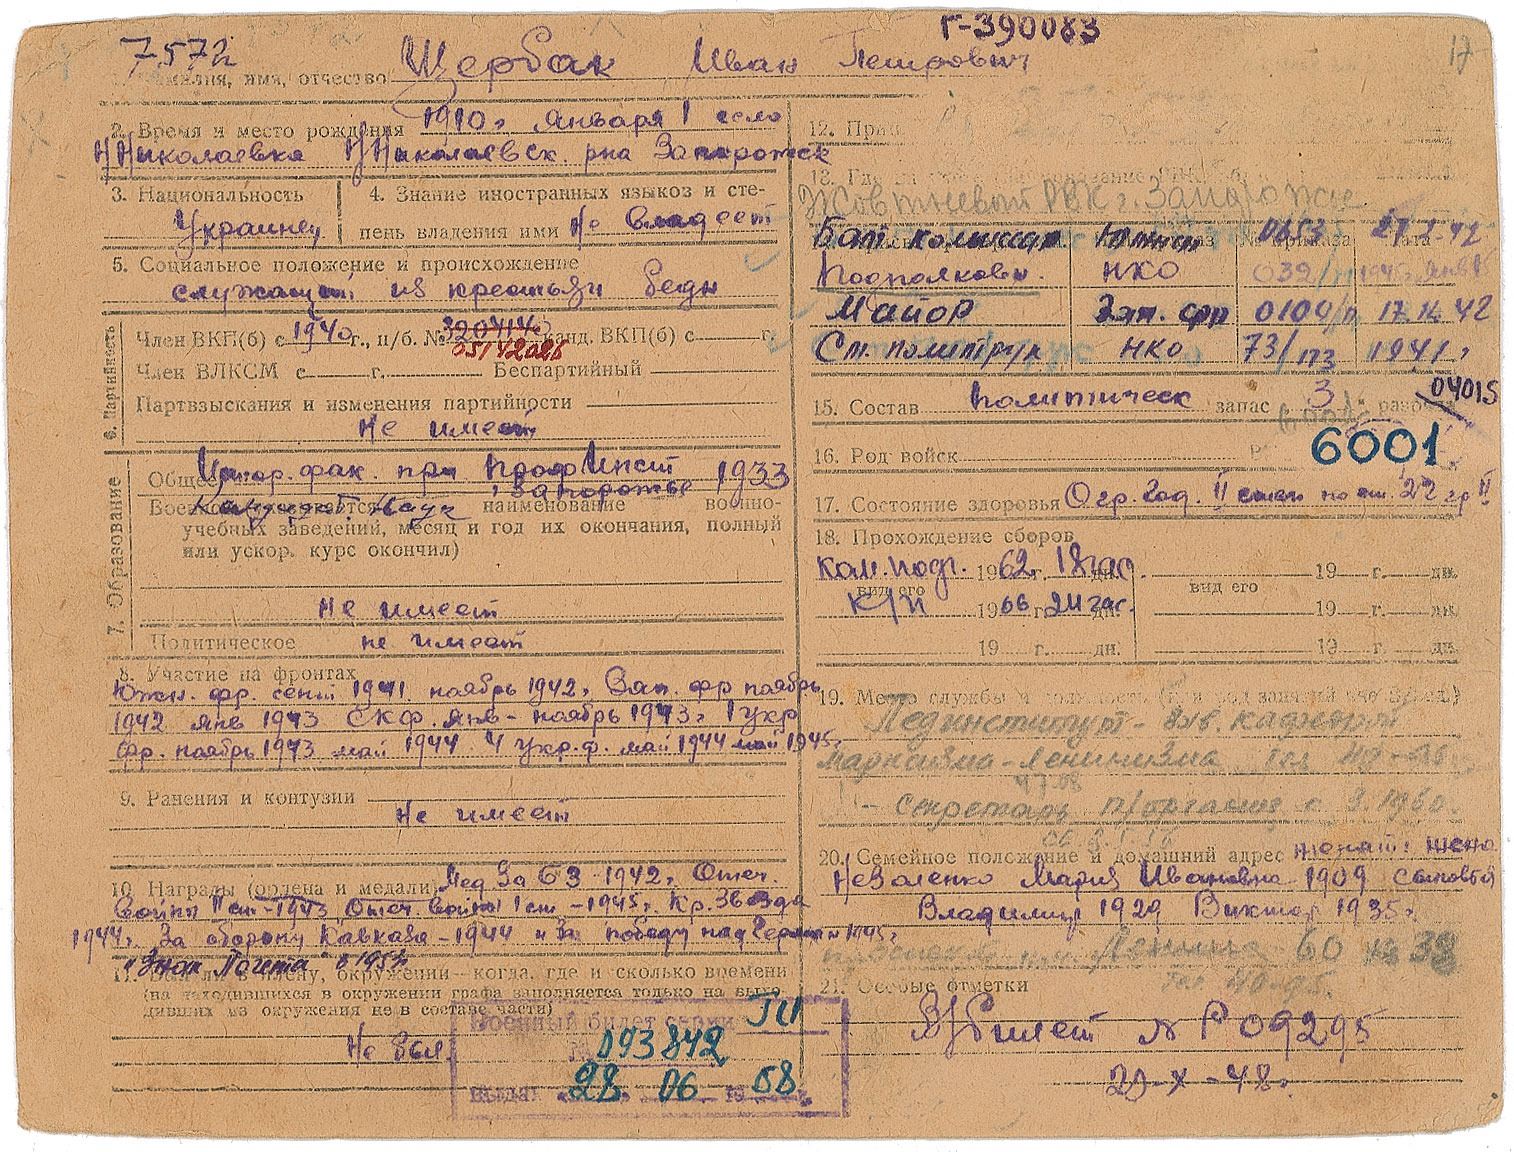 7572
Г-390083
17
1. Фамилия, имя, отчество Щербак Иван Петрович
2. Время и место рождения 1910 г. января 1 село
Н Николаевка Н Николаевск. р-на Запорожск
3. Национальность
Украинец
4. Знание иностранных языков и сте-
пень владения ими Не владеет
5. Социальное положение и происхождение
служащий из крестьян бедн
6. Партийность
Член ВКП(б) с 1940 г., п/б. № 3204140 канд. ВКП(б) с г.
05142026
Член ВЛКСМ с г. Беспартийный
Партвзыскания и изменения партийности
Не имеет
7. Образование
Общее Истор. фак. при Проф Инст 1933
Запорожье
Кандидат наук
Военное наименование военно-
учебных заведений, месяц и год их окончания, полный
или ускор. курс окончил)
Не имеет
Политическое не имеет
8. Участие на фронтах
Южн. фр. сент 1941 ноябрь 1942, Зак. фр ноябрь
1942 янв 1943 СКФ. янв - ноябрь 1943, 1 укр
фр. ноябрь 1943 май 1944 4 укр. ф. май 1944 май 1945г
9. Ранения и контузии
Не имеет
10. Награды (ордена и медали) Мед За БЗ - 1942, Отеч.
войны II ст - 1943 Отеч. войны 1 ст - 1945 г. Кр. Звезда
1944 г. За оборону Кавказа - 1944 и За победу над Герман 1945г
"Знак Почета" в
11. плену, окружении - когда, где и сколько времени
(на находившихся в окружении графа заполняется только на выхо-
дивших из окружения не в составе части)
Не был.
Военный билет серии ГЩ
№ 093842
Выдан "28" 06 19 68 г.
12.
13. Где
Жовтневый РВК г. Запорожье
Бат. комиссар 0653 27.2.42
Подполковн. НКО 039/п 1945 янв
Майор Зак. фр 0109/п 17.12.42
Ст. политрук НКО 73/пз 1941 г
15. Состав политическ запас 3 разряд
04015
16. Род войск
6001
17. Состояние здоровья Огр. год. II степ по ст. 22 гр II
18. Прохождение сборов
Ком. подг. 1962 г. 18 час. 19 г. дн.
вид его вид его
К/п 1966 г 24 час. 19 г. дн.
19 г. дн. 19 г. дн.
19. Место службы и
Пединститут - зав. кафедрой
марксизма - ленинизма тел
- Секретарь п/организ с 9.1960.
20. Семейное положение и домашний адрес женат: жена
Неваленко Мария Ивановна 1909 сыновья
Владимир 1929 Виктор 1935 г
Ленина 60 кв 38
Тел. 40-95.
21. Особые отметки
В/билет № Р 09295
20-X-48 г.